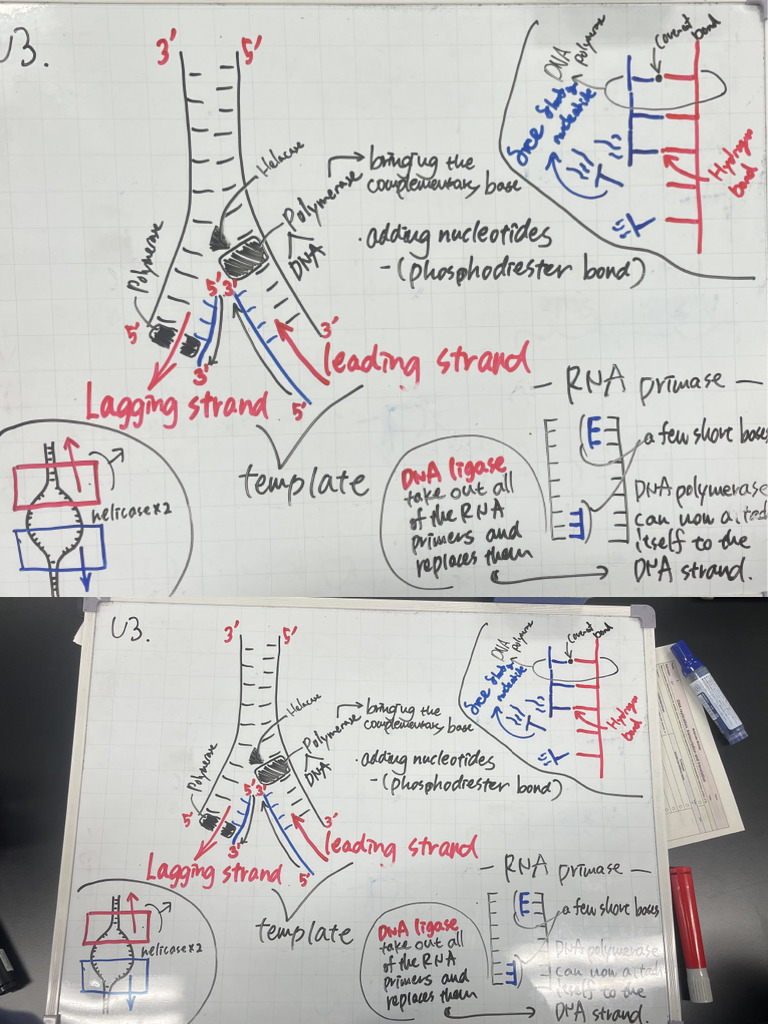 U3.
3'
5'
Helicase
Polymerase
DNA
bringing the
complementary base
·adding nucleotides
-(phosphodiester bond)
DNA
polymerase
covalent
bond
free
nucleotide
Hydrogen
bond
Polymerase
5'
5'
3'
3'
3'
5'
Lagging strand
leading strand
template
helicase×2
- RNA primase -
a few short bases
DNA ligase
take out all
of the RNA
primers and
replaces them
DNA polymerase
can now
itself to the
DNA strand.
U3.
3'
5'
Helicase
Polymerase
DNA
bringing the
complementary base
·adding nucleotides
-(phosphodiester bond)
DNA
polymerase
covalent
bond
free
nucleotide
Hydrogen
bond
Polymerase
5'
5'
3'
3'
3'
5'
Lagging strand
leading strand
template
helicase×2
- RNA primase -
a few short bases
DNA ligase
take out all
of the RNA
primers and
replaces them
DNA polymerase
can now
itself to the
DNA strand.